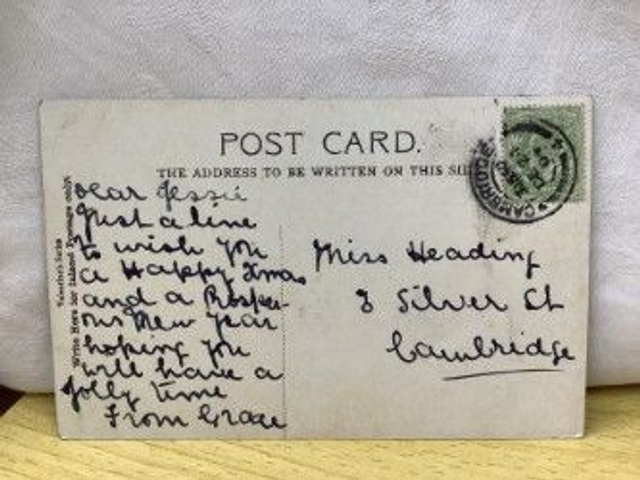 POST CARD.
THE ADDRESS TO BE WRITTEN ON THIS SI
Valentine's Series
Write Here for Inland Postage only.
Dear Jessie
Just a line
to wish you
a Happy Xmas
and a Prosper-
ous New Year
hoping you
will have a
Jolly time
From Grace
Miss Heading
3 Silver St
Cambridge
CAMBRIDGE